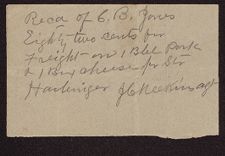 Recd of C. B. Jones
Eighty two cents for
Freight on 1 Bbl Pork
& 1 Box cheese per Str
Harbinger J C Meekins agt